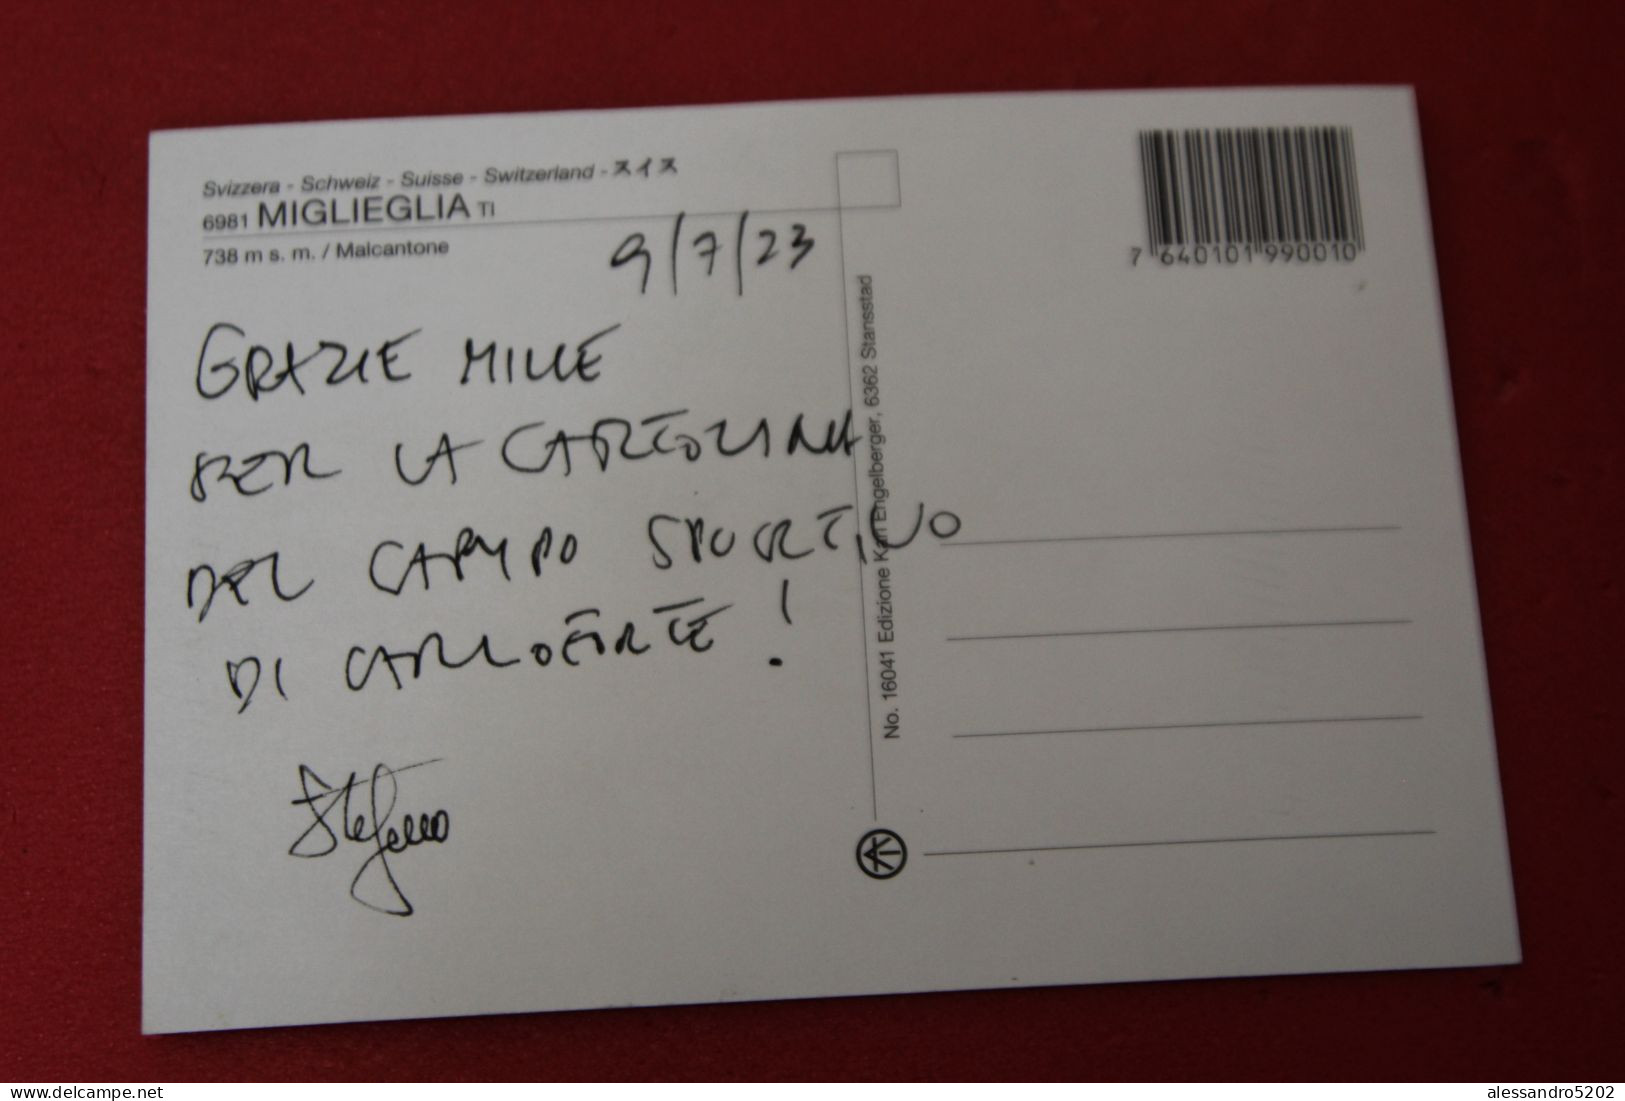 Svizzera - Schweiz - Suisse - Switzerland - スイス
6981 MIGLIEGLIA TI
738 m s. m. / Malcantone
9/7/23
GRAZIE MILLE
PER LA CARTOLINA
DEL CAMPO SPORTIVO
DI CARLOFORTE!
Stefano
No. 16041 Edizione Karl Engelberger, 6362 Stansstad
7 640101 990010
www.delcampe.net
alessandro5202